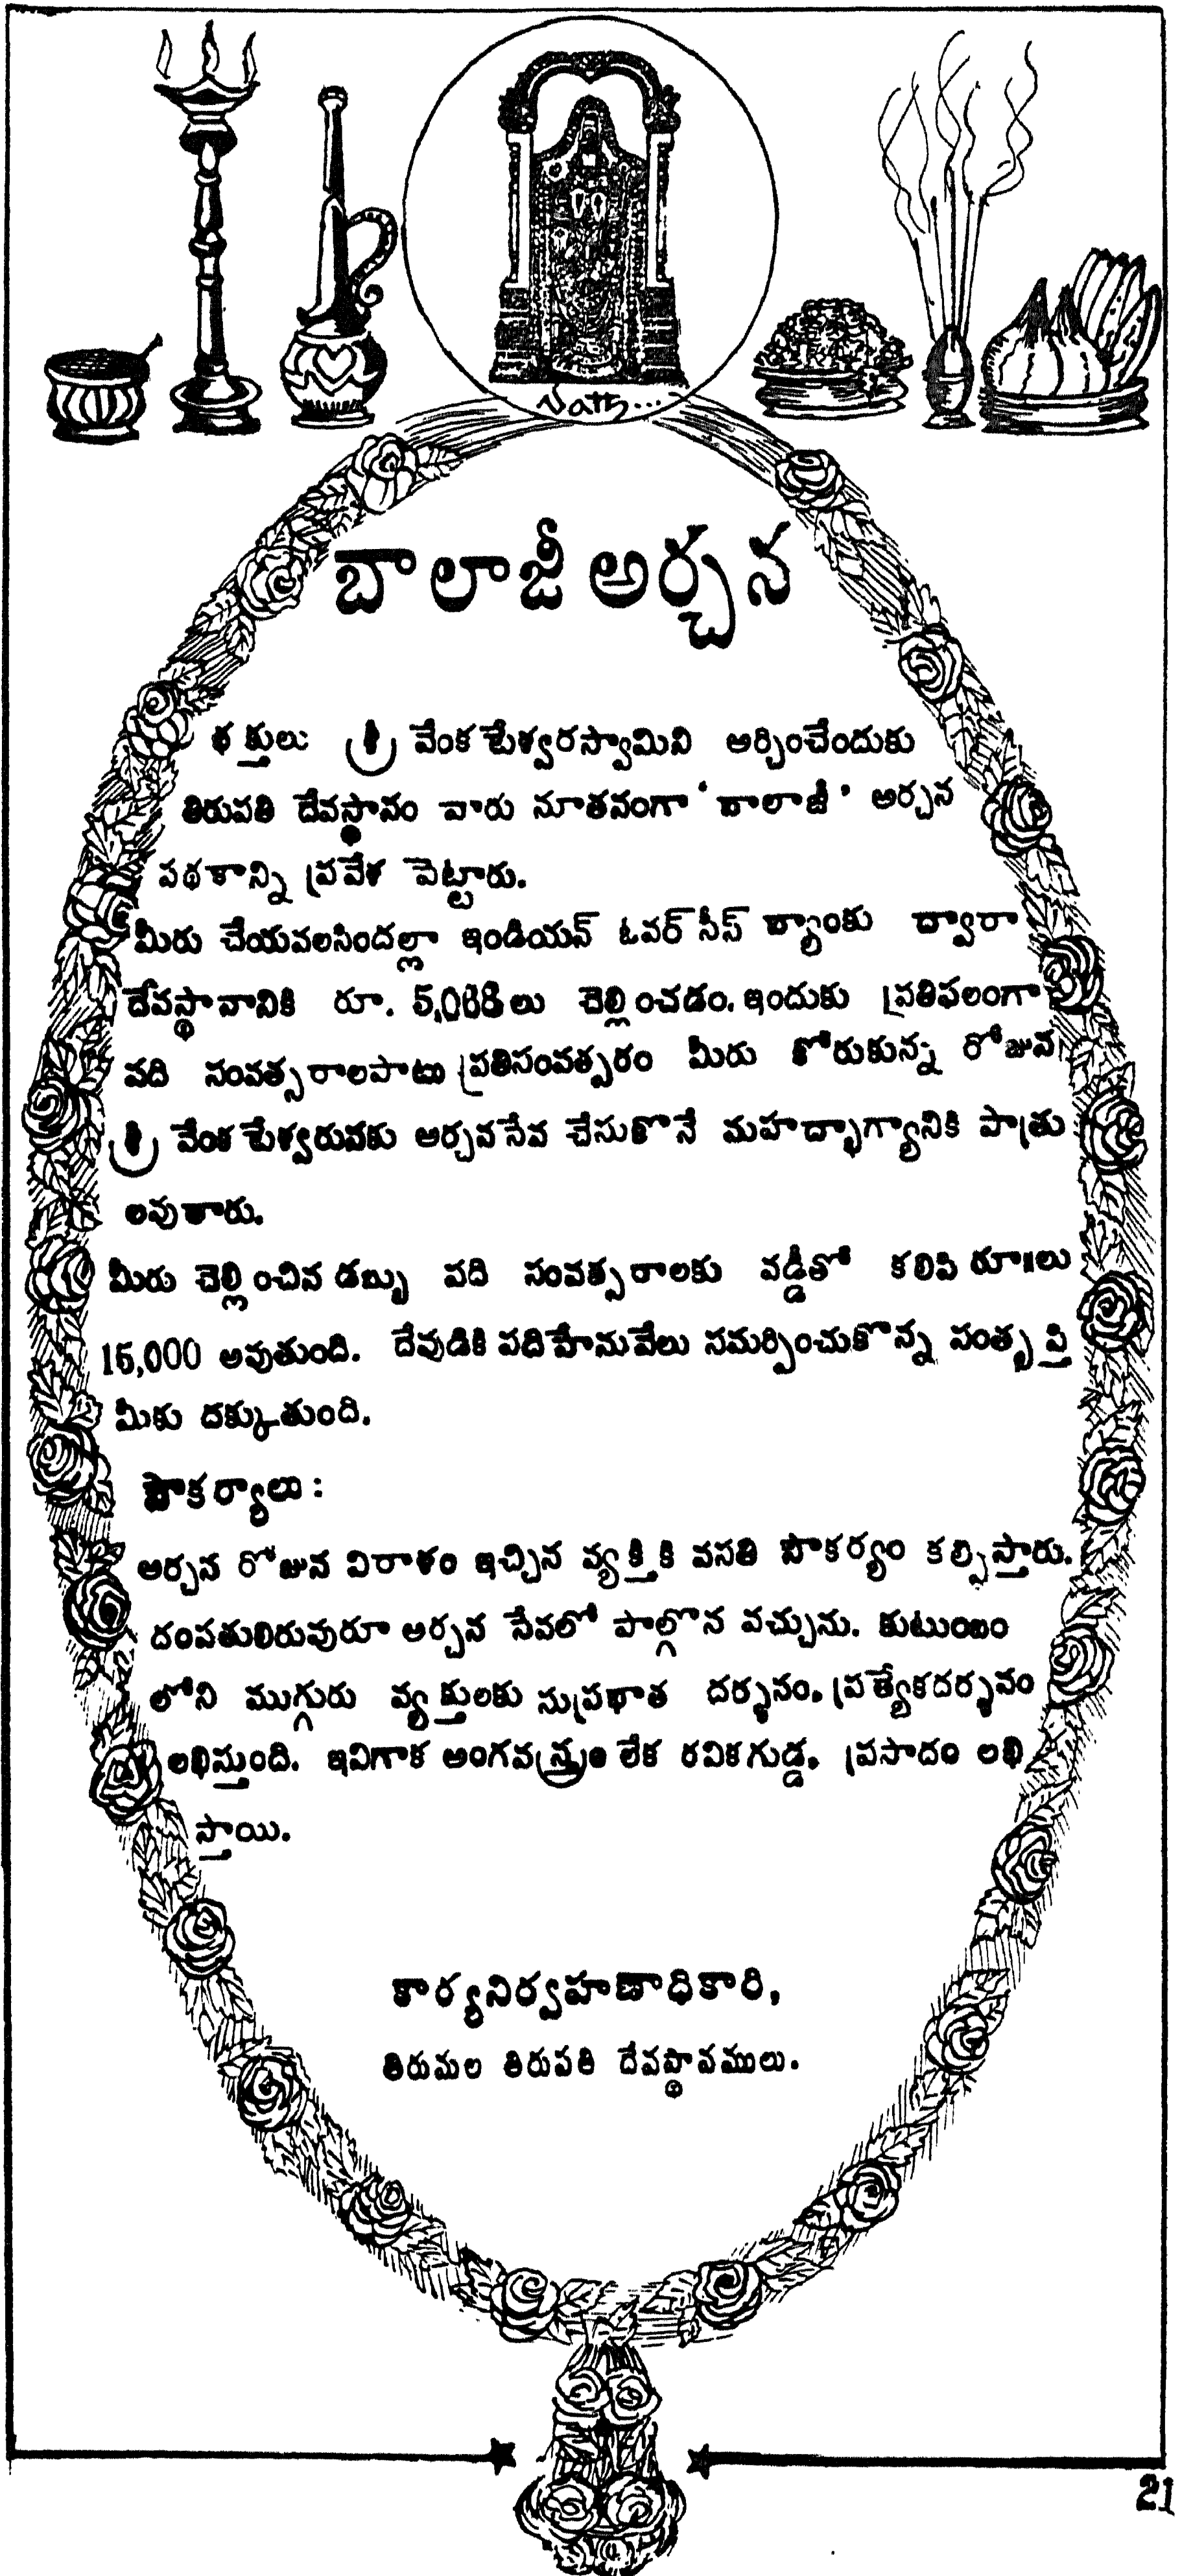 బాలాజీ అర్చన
భక్తులు శ్రీ వేంకటేశ్వరస్వామిని అర్చించేందుకు
తిరుపతి దేవస్థానం వారు నూతనంగా ‘బాలాజీ’ అర్చన
పథకాన్ని ప్రవేశ పెట్టారు.
మీరు చేయవలసిందల్లా ఇండియన్ ఓవర్ సీస్ బ్యాంకు ద్వారా
దేవస్థానానికి రూ. లు చెల్లించడం. ఇందుకు ప్రతిఫలంగా
పది సంవత్సరాలపాటు ప్రతిసంవత్సరం మీరు కోరుకున్న రోజున
శ్రీ వేంకటేశ్వరునకు అర్చనసేవ చేసుకొనే మహద్భాగ్యానికి పాత్రు
లవుతారు.
మీరు చెల్లించిన డబ్బు పది సంవత్సరాలకు వడ్డీతో కలిపి రూ॥లు
15,000 అవుతుంది. దేవుడికి పదిహేనువేలు సమర్పించుకొన్న సంతృప్తి
మీకు దక్కుతుంది.
సౌకర్యాలు :
అర్చన రోజున విరాళం ఇచ్చిన వ్యక్తికి వసతి సౌకర్యం కల్పిస్తారు.
దంపతులిరువురూ అర్చన సేవలో పాల్గొన వచ్చును. కుటుంబం
లోని ముగ్గురు వ్యక్తులకు సుప్రభాత దర్శనం, ప్రత్యేకదర్శనం
లభిస్తుంది. ఇవిగాక అంగవస్త్రం లేక రవికగుడ్డ, ప్రసాదం లభి
స్తాయి.
కార్యనిర్వహణాధికారి,
తిరుమల తిరుపతి దేవస్థానములు.
21